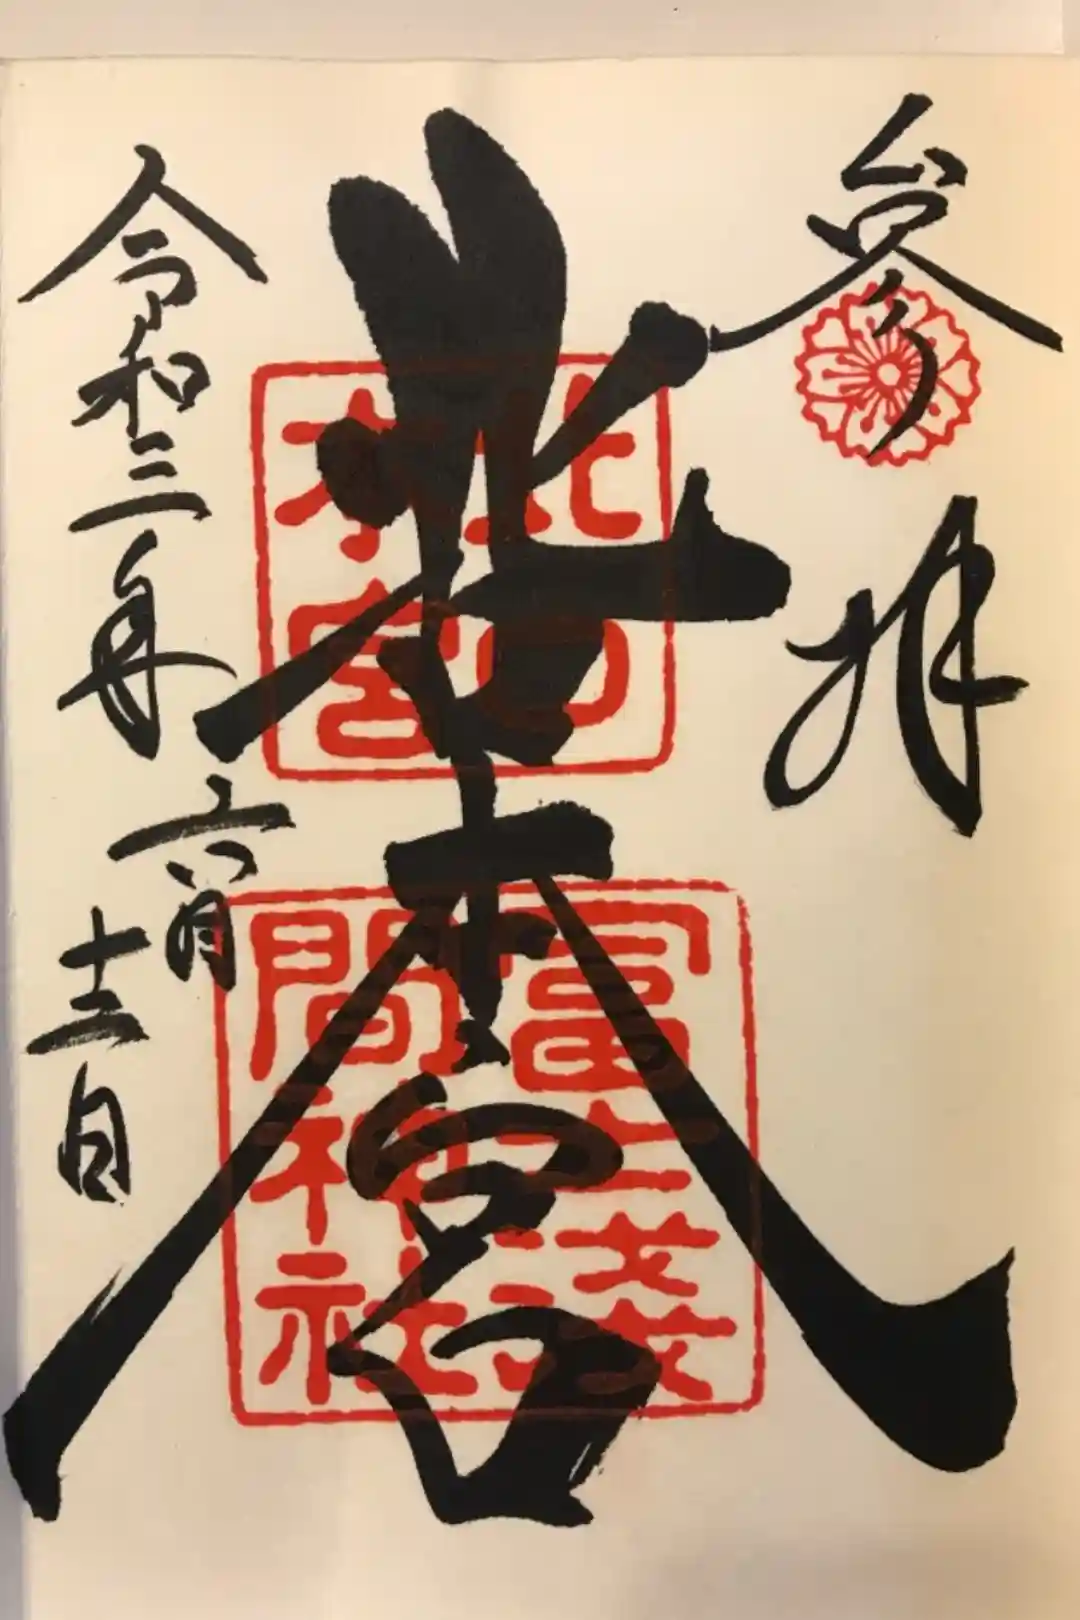 参拝
北口本宮
令和三年六月十三日
北口
本宮
冨士淺
間神社